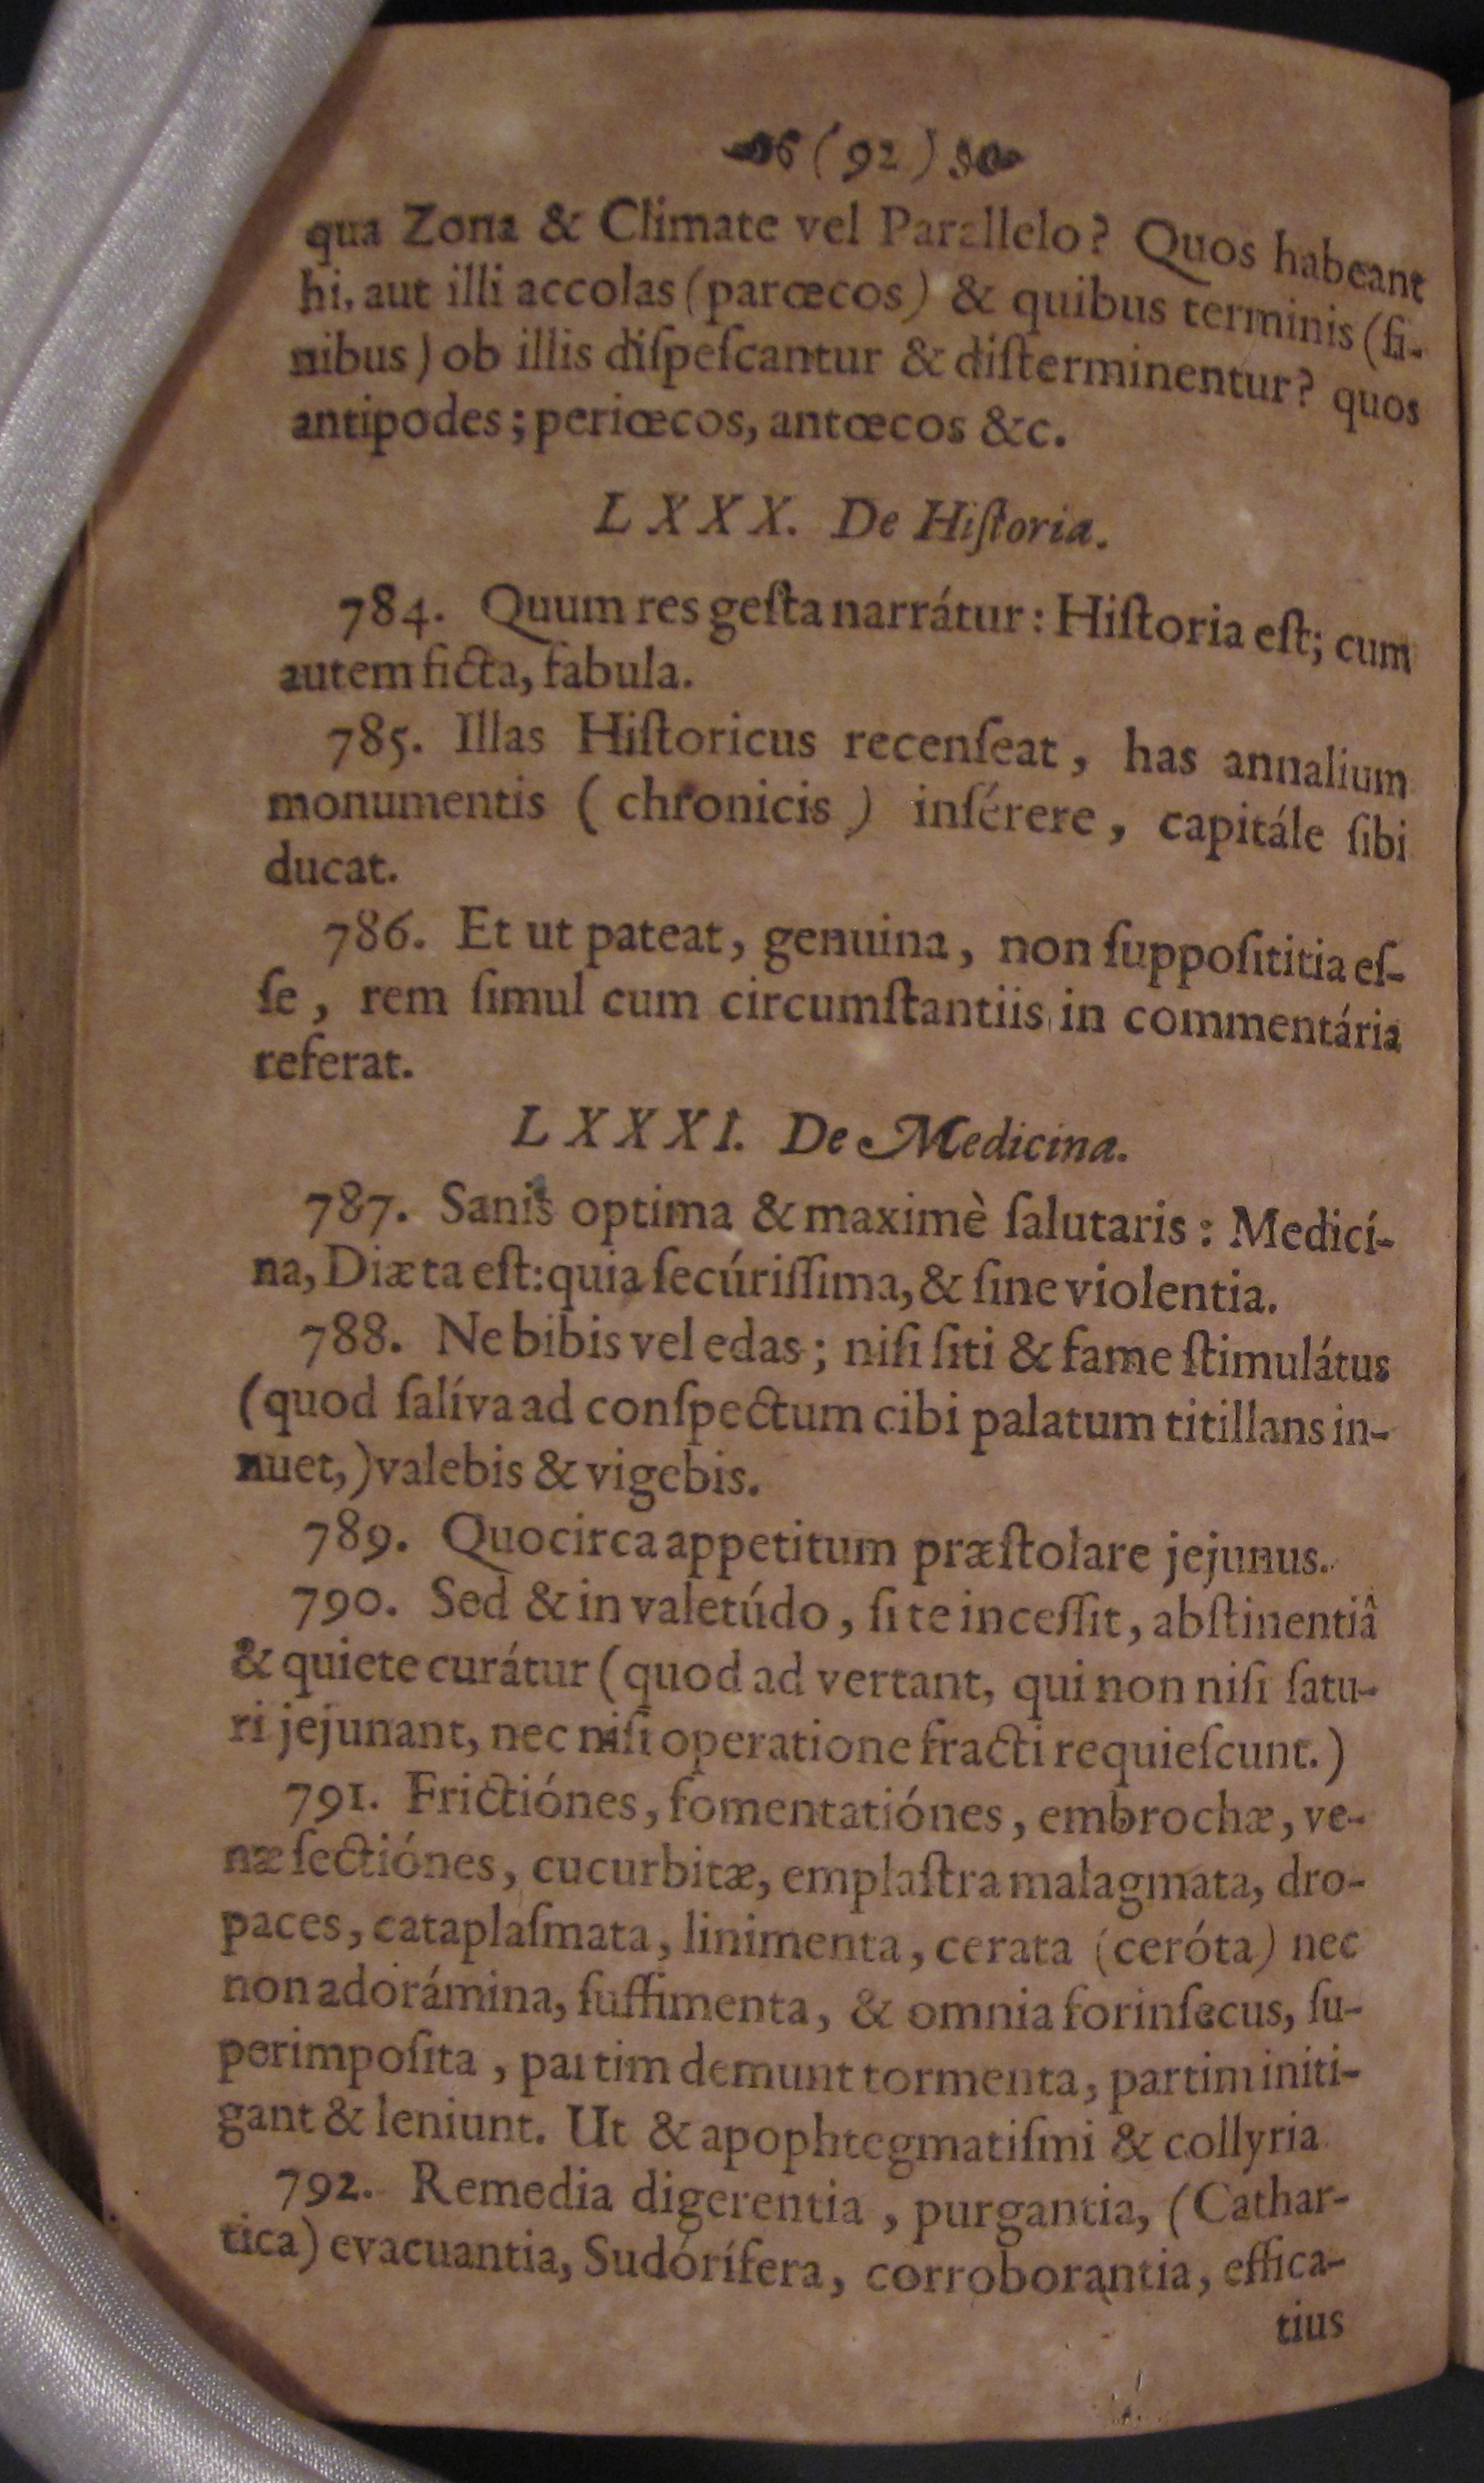 (92)
qua Zona & Climate vel Parallelo? Quos habeant
hi, aut illi accolas (parœcos) & quibus terminis (fi-
nibus) ob illis diſpeſcantur & diſterminentur? quos
antipodes; periœcos, antœcos &c.
LXXX. De Hiſtoria.
784. Quum res geſta narrátur: Hiſtoria eſt; cum
autem ficta, fabula.
785. Illas Hiſtoricus recenſeat, has annalium
monumentis (chronicis) inſérere, capitále ſibi
ducat.
786. Et ut pateat, genuina, non ſuppoſititia eſ-
ſe, rem ſimul cum circumſtantiis in commentária
referat.
LXXXI. De Medicina.
787. Sanis optima & maximè ſalutaris: Medicí-
na, Diæta eſt: quia ſecúriſſima, & ſine violentia.
788. Ne bibis vel edas; niſi ſiti & fame ſtimulátus
(quod ſalíva ad conſpectum cibi palatum titillans in-
nuet,) valebis & vigebis.
789. Quocirca appetitum præſtolare jejunus.
790. Sed & in valetúdo, ſi te inceſſit, abſtinentiâ
& quiete curátur (quod ad vertant, qui non niſi ſatu-
ri jejunant, nec niſi operatione fracti requieſcunt.)
791. Frictiónes, fomentatiónes, embrochæ, ve-
næ ſectiónes, cucurbitæ, emplaſtra malagmata, dro-
paces, cataplaſmata, linimenta, cerata (ceróta) nec
non adorámina, ſuffimenta, & omnia forinſecus, ſu-
perimpoſita, partim demunt tormenta, partim initi-
gant & leniunt. Ut & apophtegmatiſmi & collyria
792. Remedia digerentia, purgantia, (Cathar-
tica) evacuantia, Sudórífera, corroborantia, effica-
tius